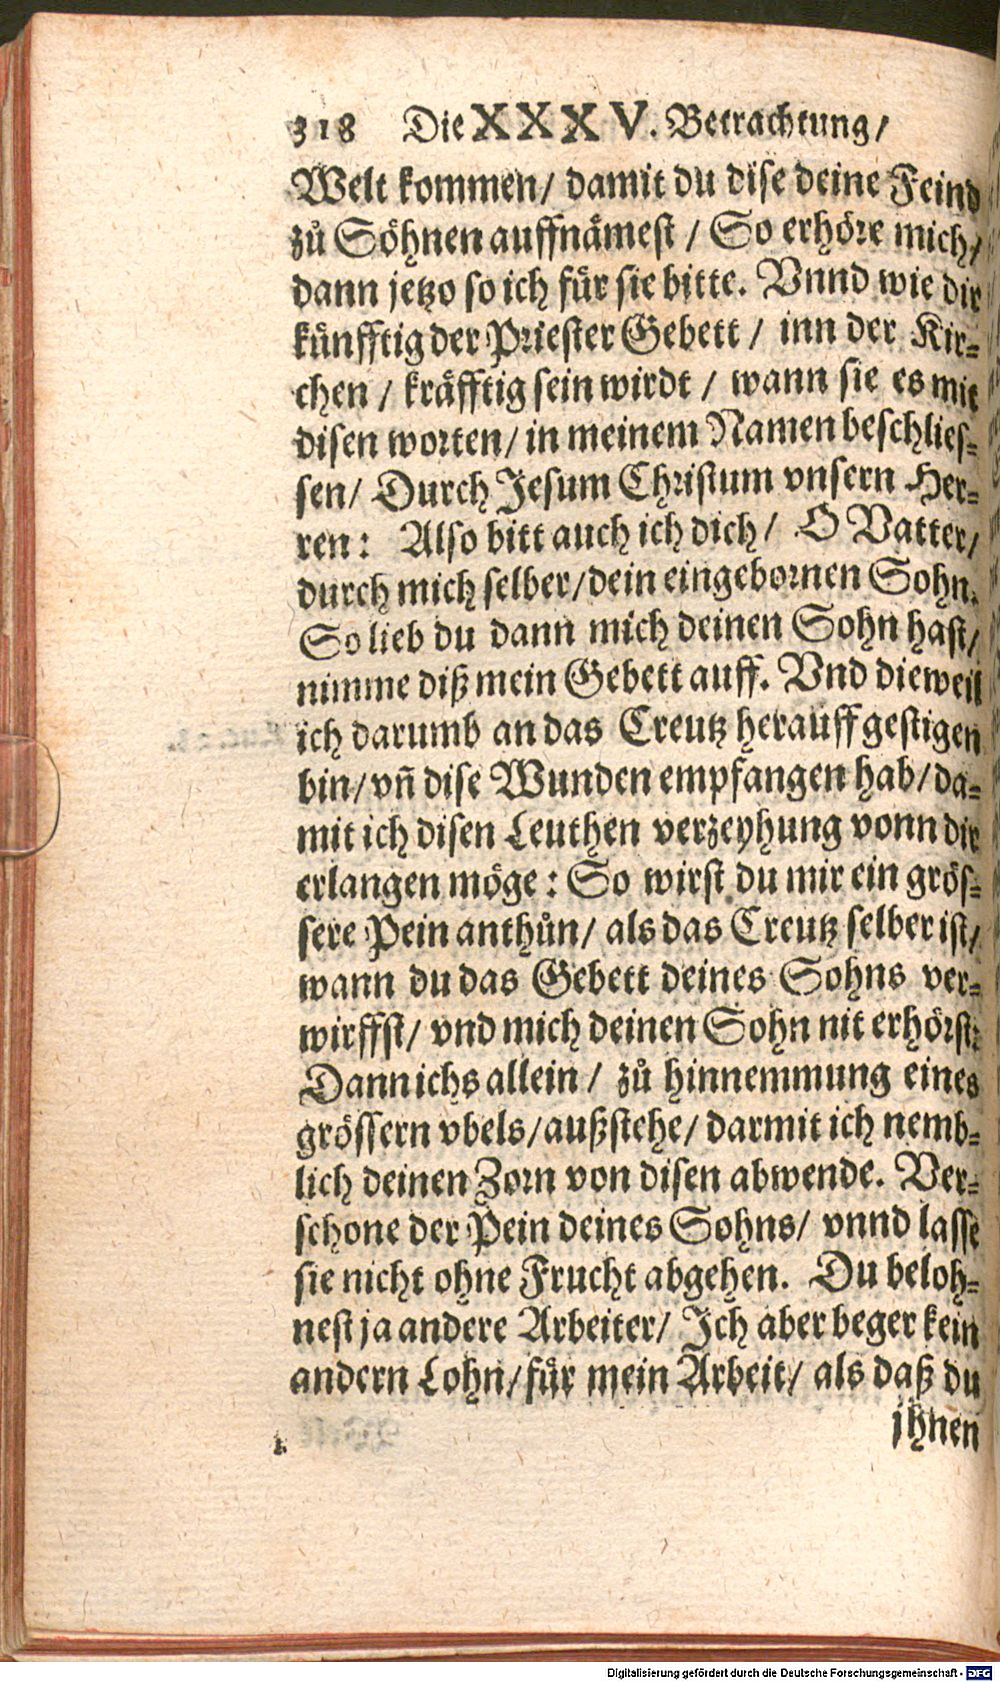 318 Die XXXV. Betrachtung/
Welt kommen/ damit du dise deine Feind
zů Söhnen auffnämest / So erhöre mich/
dann jetzo so ich für sie bitte. Vnnd wie dir
künfftig der Priester Gebett / inn der Kir-
chen / kräfftig sein wirdt / wann sie es mit
disen worten/ in meinem Namen beschlies-
sen/ Durch Jesum Christum vnsern Her-
ren: Also bitt auch ich dich/ O Vatter/
durch mich selber/dein eingebornen Sohn.
So lieb du dann mich deinen Sohn hast/
nimme diß mein Gebett auff. Vnd dieweil
ich darumb an das Creutz herauff gestigen
bin/ vñ dise Wunden empfangen hab/ da-
mit ich disen Leuthen verzeyhung vonn dir
erlangen möge: So wirst du mir ein grös-
sere Pein anthůn/ als das Creutz selber ist/
wann du das Gebett deines Sohns ver-
wirffst/ vnd mich deinen Sohn nit erhörst:
Dann ichs allein/ zů hinnemmung eines
grössern vbels/außstehe/ darmit ich nemb-
lich deinen Zorn von disen abwende. Ver-
schone der Pein deines Sohns/ vnnd lasse
sie nicht ohne Frucht abgehen. Du beloh-
nest ja andere Arbeiter/ Ich aber beger kein
andern Lohn/für mein Arbeit/ als daß du
jhnen
Digitalisierung gefördert durch die Deutsche Forschungsgemeinschaft - DFG